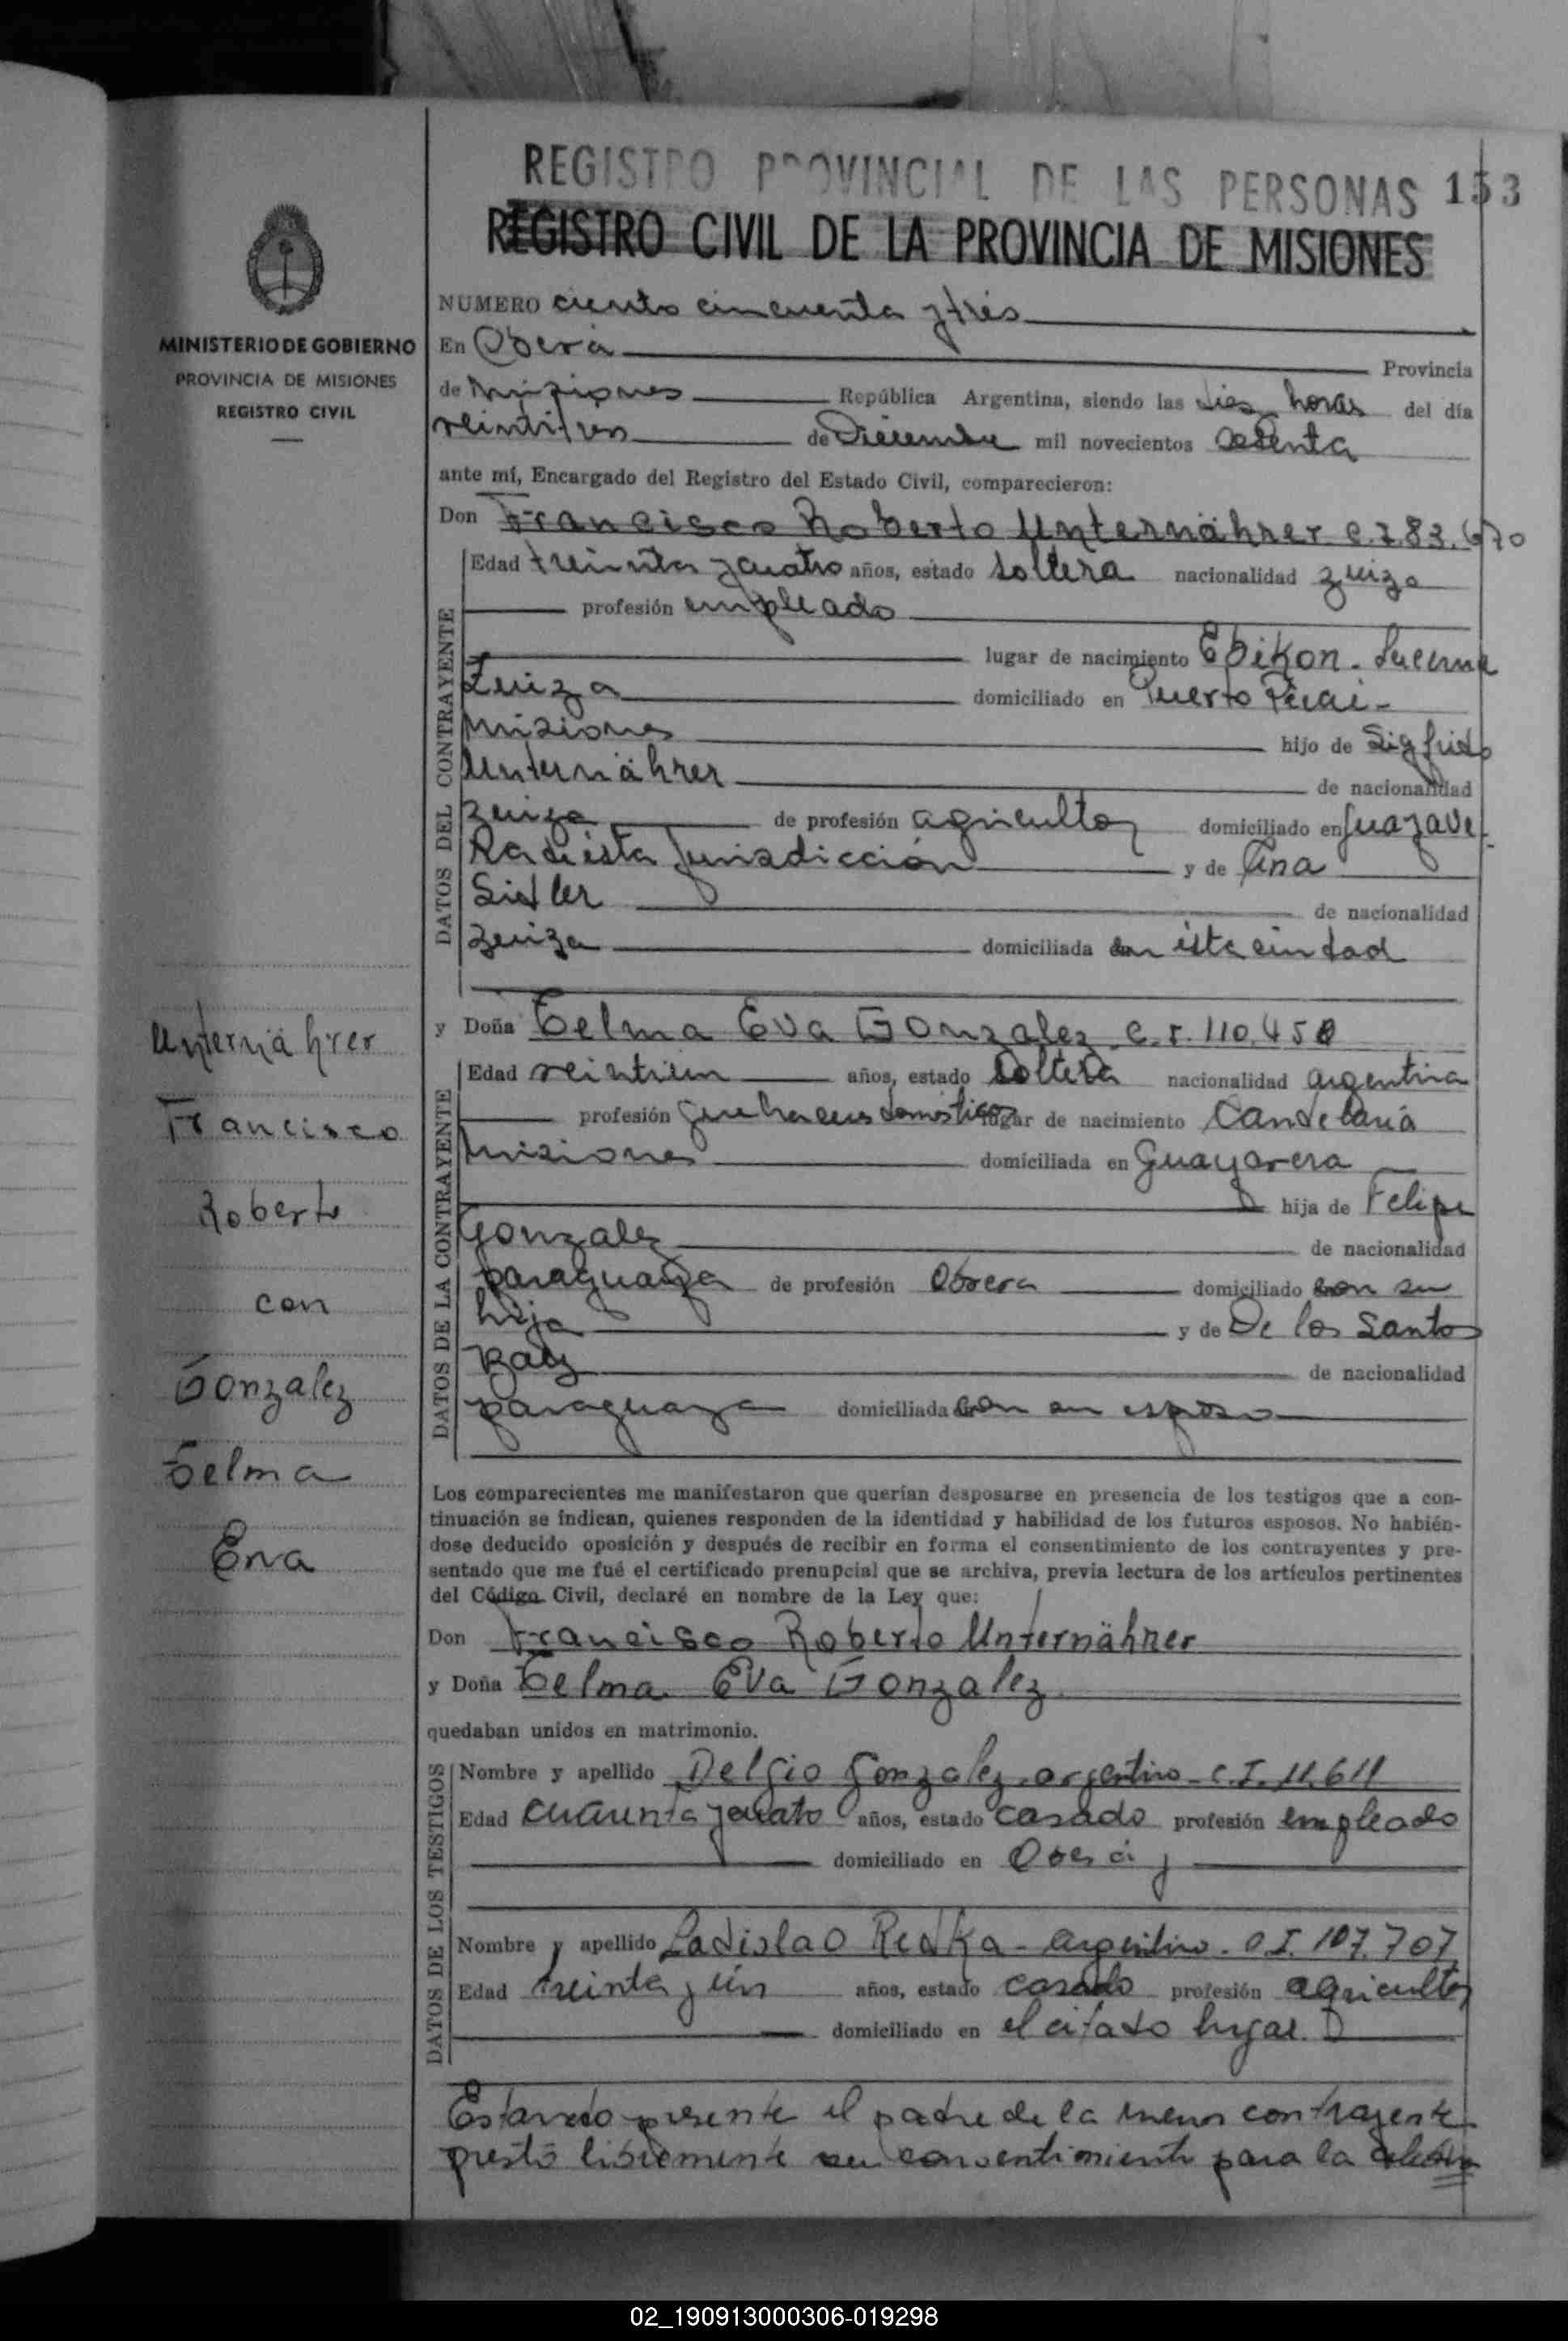 REGISTRO PROVINCIAL DE LAS PERSONAS 153
REGISTRO CIVIL DE LA PROVINCIA DE MISIONES
MINISTERIO DE GOBIERNO
PROVINCIA DE MISIONES
REGISTRO CIVIL
NUMERO ciento cincuenta y tres
En Oberá Provincia
de Misiones República Argentina, siendo las diez horas del día
de Diciembre mil novecientos
ante mí, Encargado del Registro del Estado Civil, comparecieron:
Don Francisco Roberto Unternährer C.I. 83.670
DATOS DEL CONTRAYENTE
Edad treinta y cuatro años, estado soltero nacionalidad zuiza
profesión empleado
lugar de nacimiento Ebikon - Lucerna
Zuiza domiciliado en Puerto
Misiones hijo de Sigfrido
Unternährer de nacionalidad
zuiza de profesión agricultor domiciliado en Guayave
Ra de ésta Jurisdicción y de Ana
Sidler de nacionalidad
zuiza domiciliada en ésta ciudad
y Doña Telma Eva Gonzalez C.I. 110.458
DATOS DE LA CONTRAYENTE
Edad años, estado soltera nacionalidad argentina
profesión quehaceres domésticos lugar de nacimiento Candelaria
Misiones domiciliada en Guayavera
hija de Felipe
Gonzalez de nacionalidad
paraguaya de profesión Obrera domiciliado con su
hija y de De los Santos
de nacionalidad
paraguaya domiciliada con su esposo
Unternährer
Francisco
Roberto
con
Gonzalez
Telma
Eva
Los comparecientes me manifestaron que querían desposarse en presencia de los testigos que a con-
tinuación se indican, quienes responden de la identidad y habilidad de los futuros esposos. No habién-
dose deducido oposición y después de recibir en forma el consentimiento de los contrayentes y pre-
sentado que me fué el certificado prenupcial que se archiva, previa lectura de los artículos pertinentes
del Código Civil, declaré en nombre de la Ley que:
Don Francisco Roberto Unternährer
y Doña Telma Eva Gonzalez
quedaban unidos en matrimonio.
DATOS DE LOS TESTIGOS
Nombre y apellido Delfio Gonzalez argentino - C.I. 11.611
Edad cuarenta y cuatro años, estado casado profesión empleado
domiciliado en Oberá
Nombre y apellido Ladislao Redka - argentino - C.I. 107.707
Edad treinta y un años, estado casado profesión agricultor
domiciliado en el citado lugar.
Estando presente el padre de la menor contrayente
prestó libremente su consentimiento para la
02_190913000306-019298